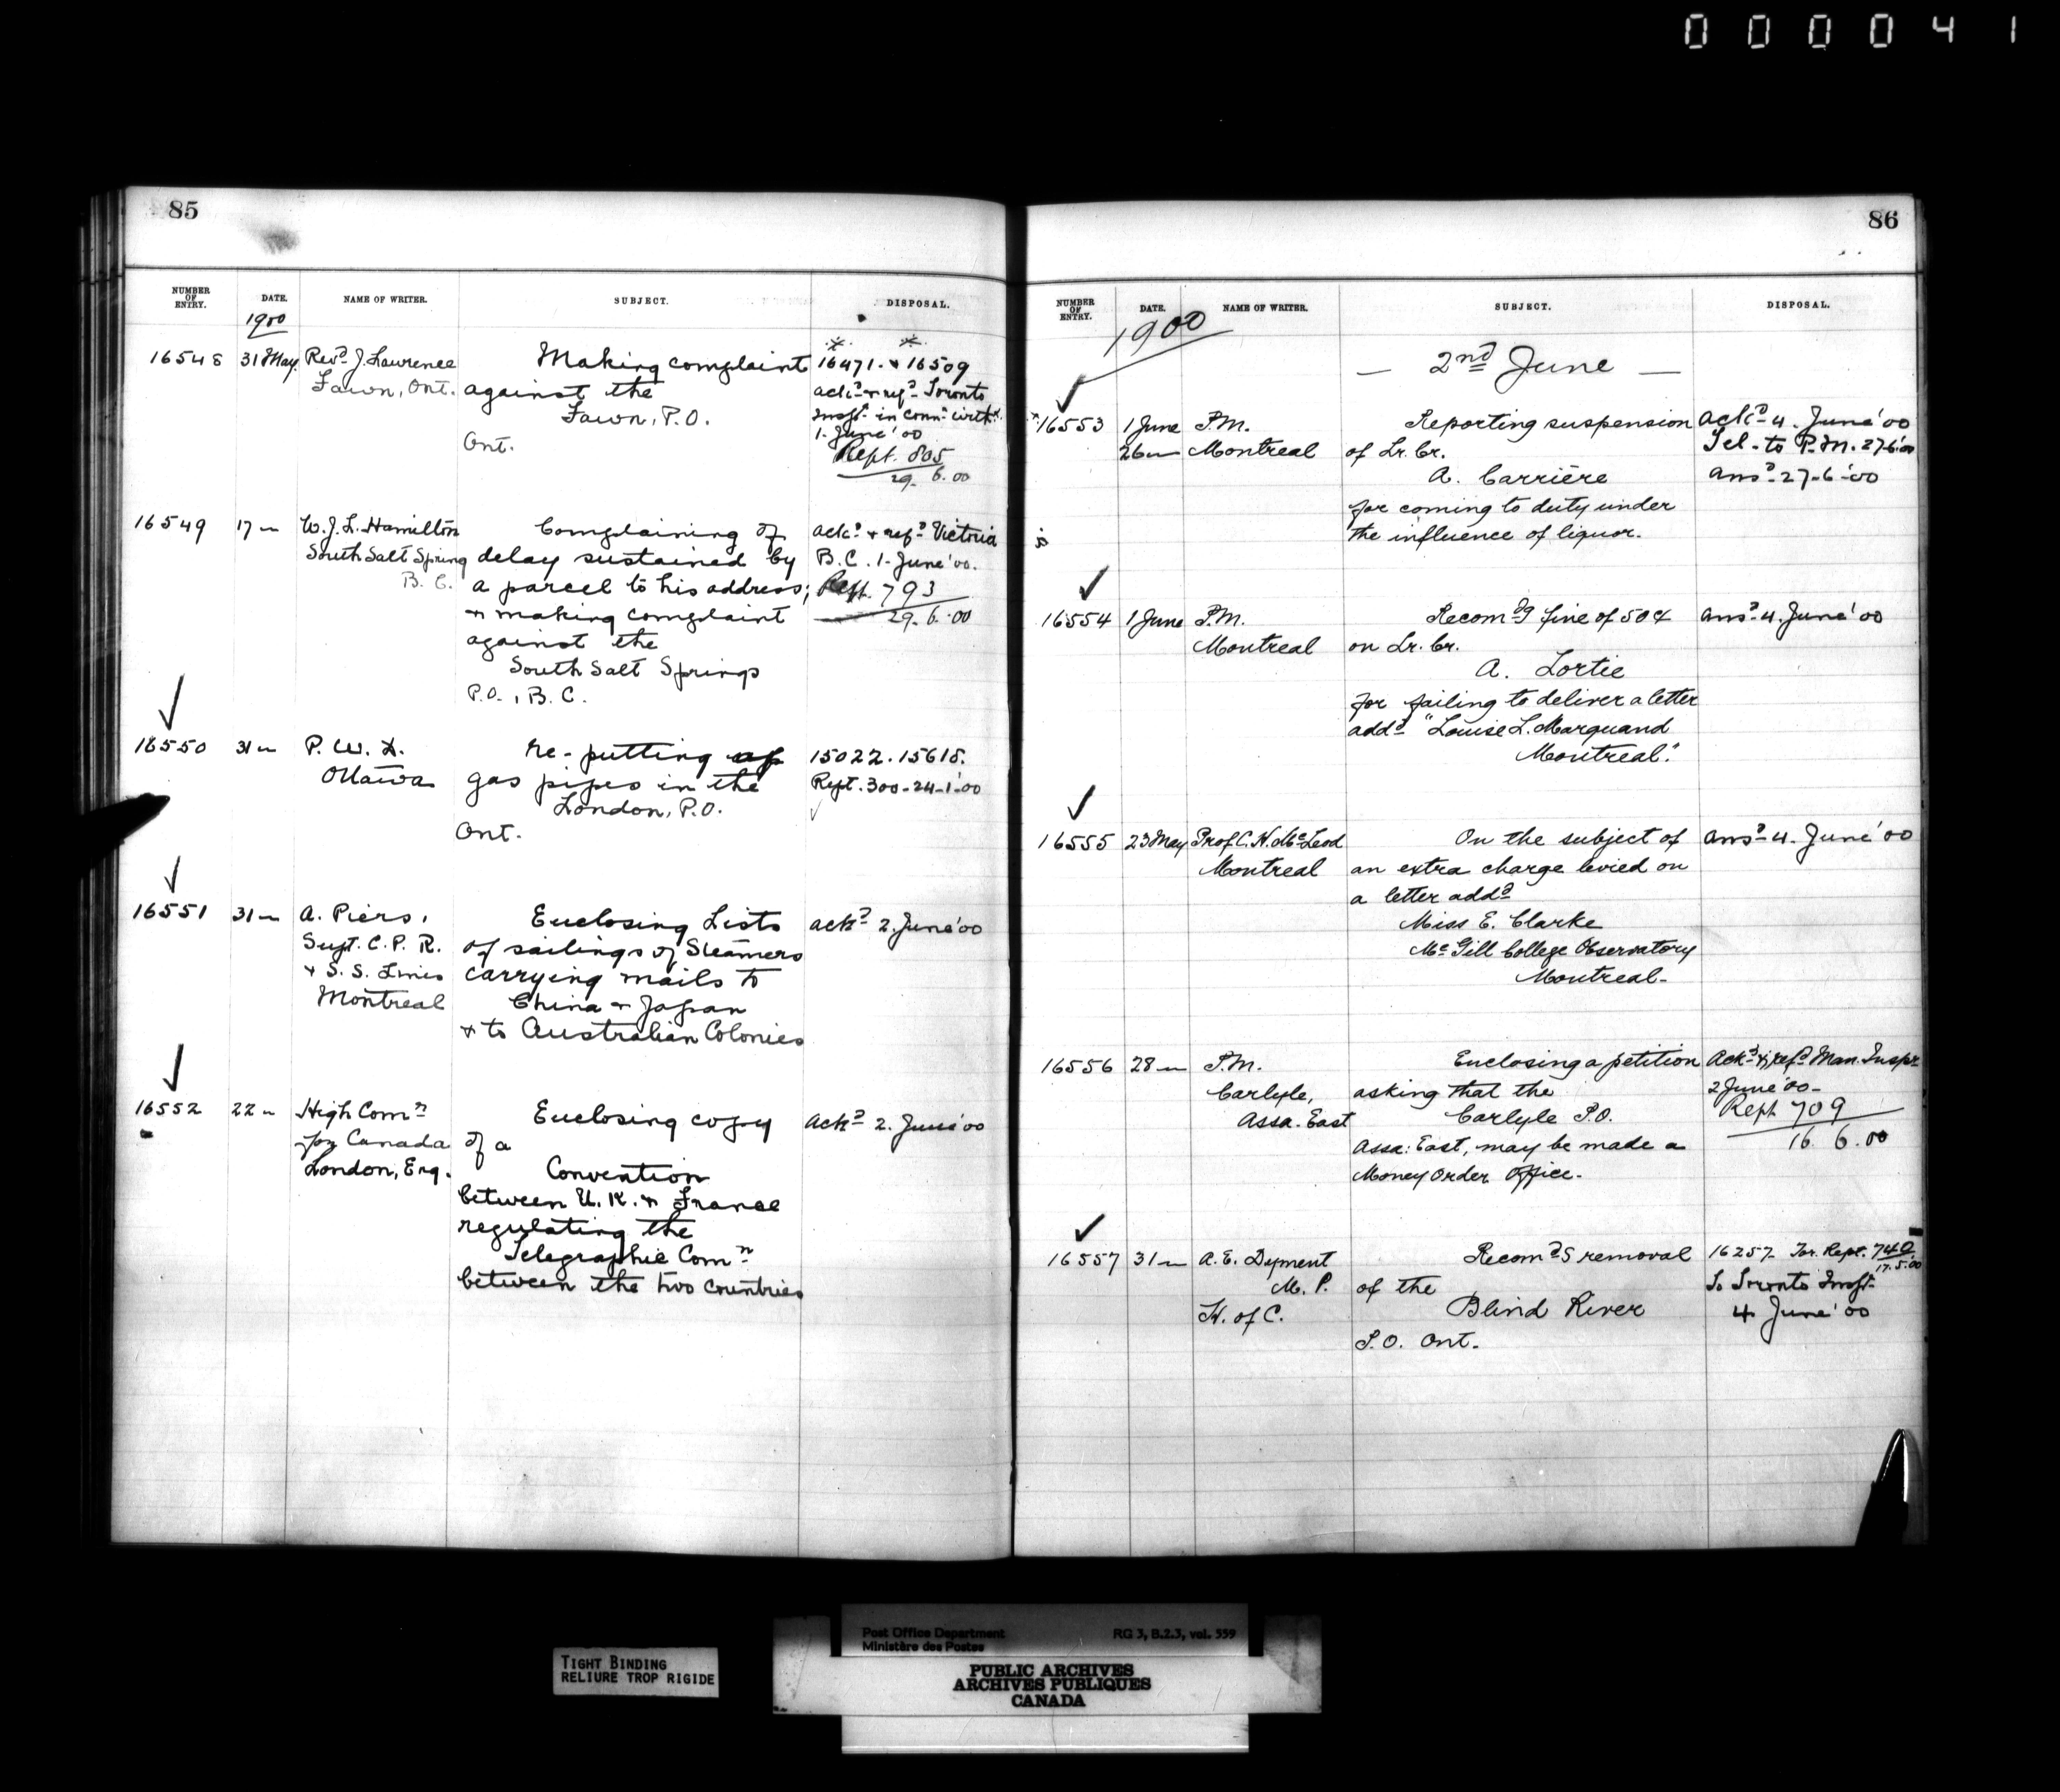 000041
85
NUMBER OF ENTRY. DATE. NAME OF WRITER. SUBJECT. DISPOSAL.
1900
16548 31 May Revd. J. Lawrence Making complaint 16471. & 16509
Fawn, Ont. against the ackd & refd Toronto
Fawn, P.O. Inspr in conn with
1. June '00
Ont. Rept. 805
29. 6. 00
16549 17 " W. J. L. Hamilton Complaining of ackd & refd Victoria
South Salt Spring delay sustained by B.C. 1. June '00.
B.C. a parcel to his address; Rept. 793
& making complaint 29. 6. 00
against the
South Salt Springs
P.O., B.C.
16550 31 " P. W. D. Re-putting up 15022. 15618.
Ottawa gas pipes in the Rept. 300-24-1-00
London, P.O.
Ont.
16551 31 " A. Piers, Enclosing Lists ackd 2. June '00
Supt. C. P. R. of sailings of Steamers
& S. S. Lines carrying mails to
Montreal China & Japan
& to Australian Colonies
16552 22 " High Comn Enclosing copy ackd 2. June '00
for Canada of a
London, Eng. Convention
between U. K. & France
regulating the
Telegraphic Comn
between the two countries
86
NUMBER OF ENTRY. DATE. NAME OF WRITER. SUBJECT. DISPOSAL.
1900
— 2nd June —
16553 1 June P.M. Reporting suspension ackd 4. June '00
26 " Montreal of Lr. Cr. Tel. to P.M. 27-6-00
A. Carrière ansd 27-6-00
for coming to duty under
the influence of liquor.
16554 1 June P.M. Recomdg fine of 50¢ ansd 4. June '00
Montreal on Lr. Cr.
A. Lortie
for failing to deliver a letter
addd "Louise L. Marquand
Montreal".
16555 23 May Prof. C. H. McLeod On the subject of ansd 4. June '00
Montreal an extra charge levied on
a letter addd
Miss E. Clarke
McGill College Observatory
Montreal.
16556 28 " P.M. Enclosing a petition Ackd & refd Man. Inspr
Carlyle, asking that the 2 June '00
Assa. East Carlyle P.O. Rept 709
Assa: East, may be made a 16. 6. 00
Money Order Office.
16557 31 " A. E. Dyment Recomds removal 16257 Tor. Rept. 740
17.5.00
M. P. of the To Toronto Inspr
H. of C. Blind River 4 June '00
P.O. Ont.
TIGHT BINDING
RELIURE TROP RIGIDE
Post Office Department RG 3, B.2.3, vol. 559
Ministère des Postes
PUBLIC ARCHIVES
ARCHIVES PUBLIQUES
CANADA